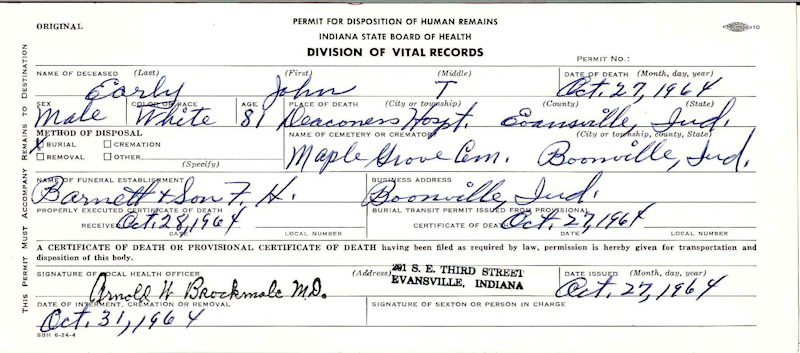 ORIGINAL
PERMIT FOR DISPOSITION OF HUMAN REMAINS
INDIANA STATE BOARD OF HEALTH
DIVISION OF VITAL RECORDS
10
PERMIT NO.:
THIS PERMIT MUST ACCOMPANY REMAINS TO DESTINATION
NAME OF DECEASED (Last) (First) (Middle) DATE OF DEATH (Month, day, year)
Early John T Oct. 27, 1964
SEX COLOR OR RACE AGE PLACE OF DEATH (City or township) (County) (State)
Male White 81 Deaconess Hospt. Evansville, Ind.
METHOD OF DISPOSAL NAME OF CEMETERY OR CREMATORY (City or township, county, State)
X BURIAL CREMATION
REMOVAL OTHER
(Specify)
Maple Grove Cem. Boonville, Ind.
NAME OF FUNERAL ESTABLISHMENT BUSINESS ADDRESS
Barnett & Son F. H. Boonville, Ind.
PROPERLY EXECUTED CERTIFICATE OF DEATH BURIAL TRANSIT PERMIT ISSUED FROM PROVISIONAL
RECEIVED Oct. 28, 1964 CERTIFICATE OF DEATH Oct. 27, 1964
DATE LOCAL NUMBER DATE LOCAL NUMBER
A CERTIFICATE OF DEATH OR PROVISIONAL CERTIFICATE OF DEATH having been filed as required by law, permission is hereby given for transportation and
disposition of this body.
SIGNATURE OF LOCAL HEALTH OFFICER (Address) 201 S. E. THIRD STREET DATE ISSUED (Month, day, year)
Arnold W Brockmole M.D. EVANSVILLE, INDIANA Oct. 27, 1964
DATE OF INTERMENT, CREMATION OR REMOVAL SIGNATURE OF SEXTON OR PERSON IN CHARGE
Oct. 31, 1964
SBH 6-24-4